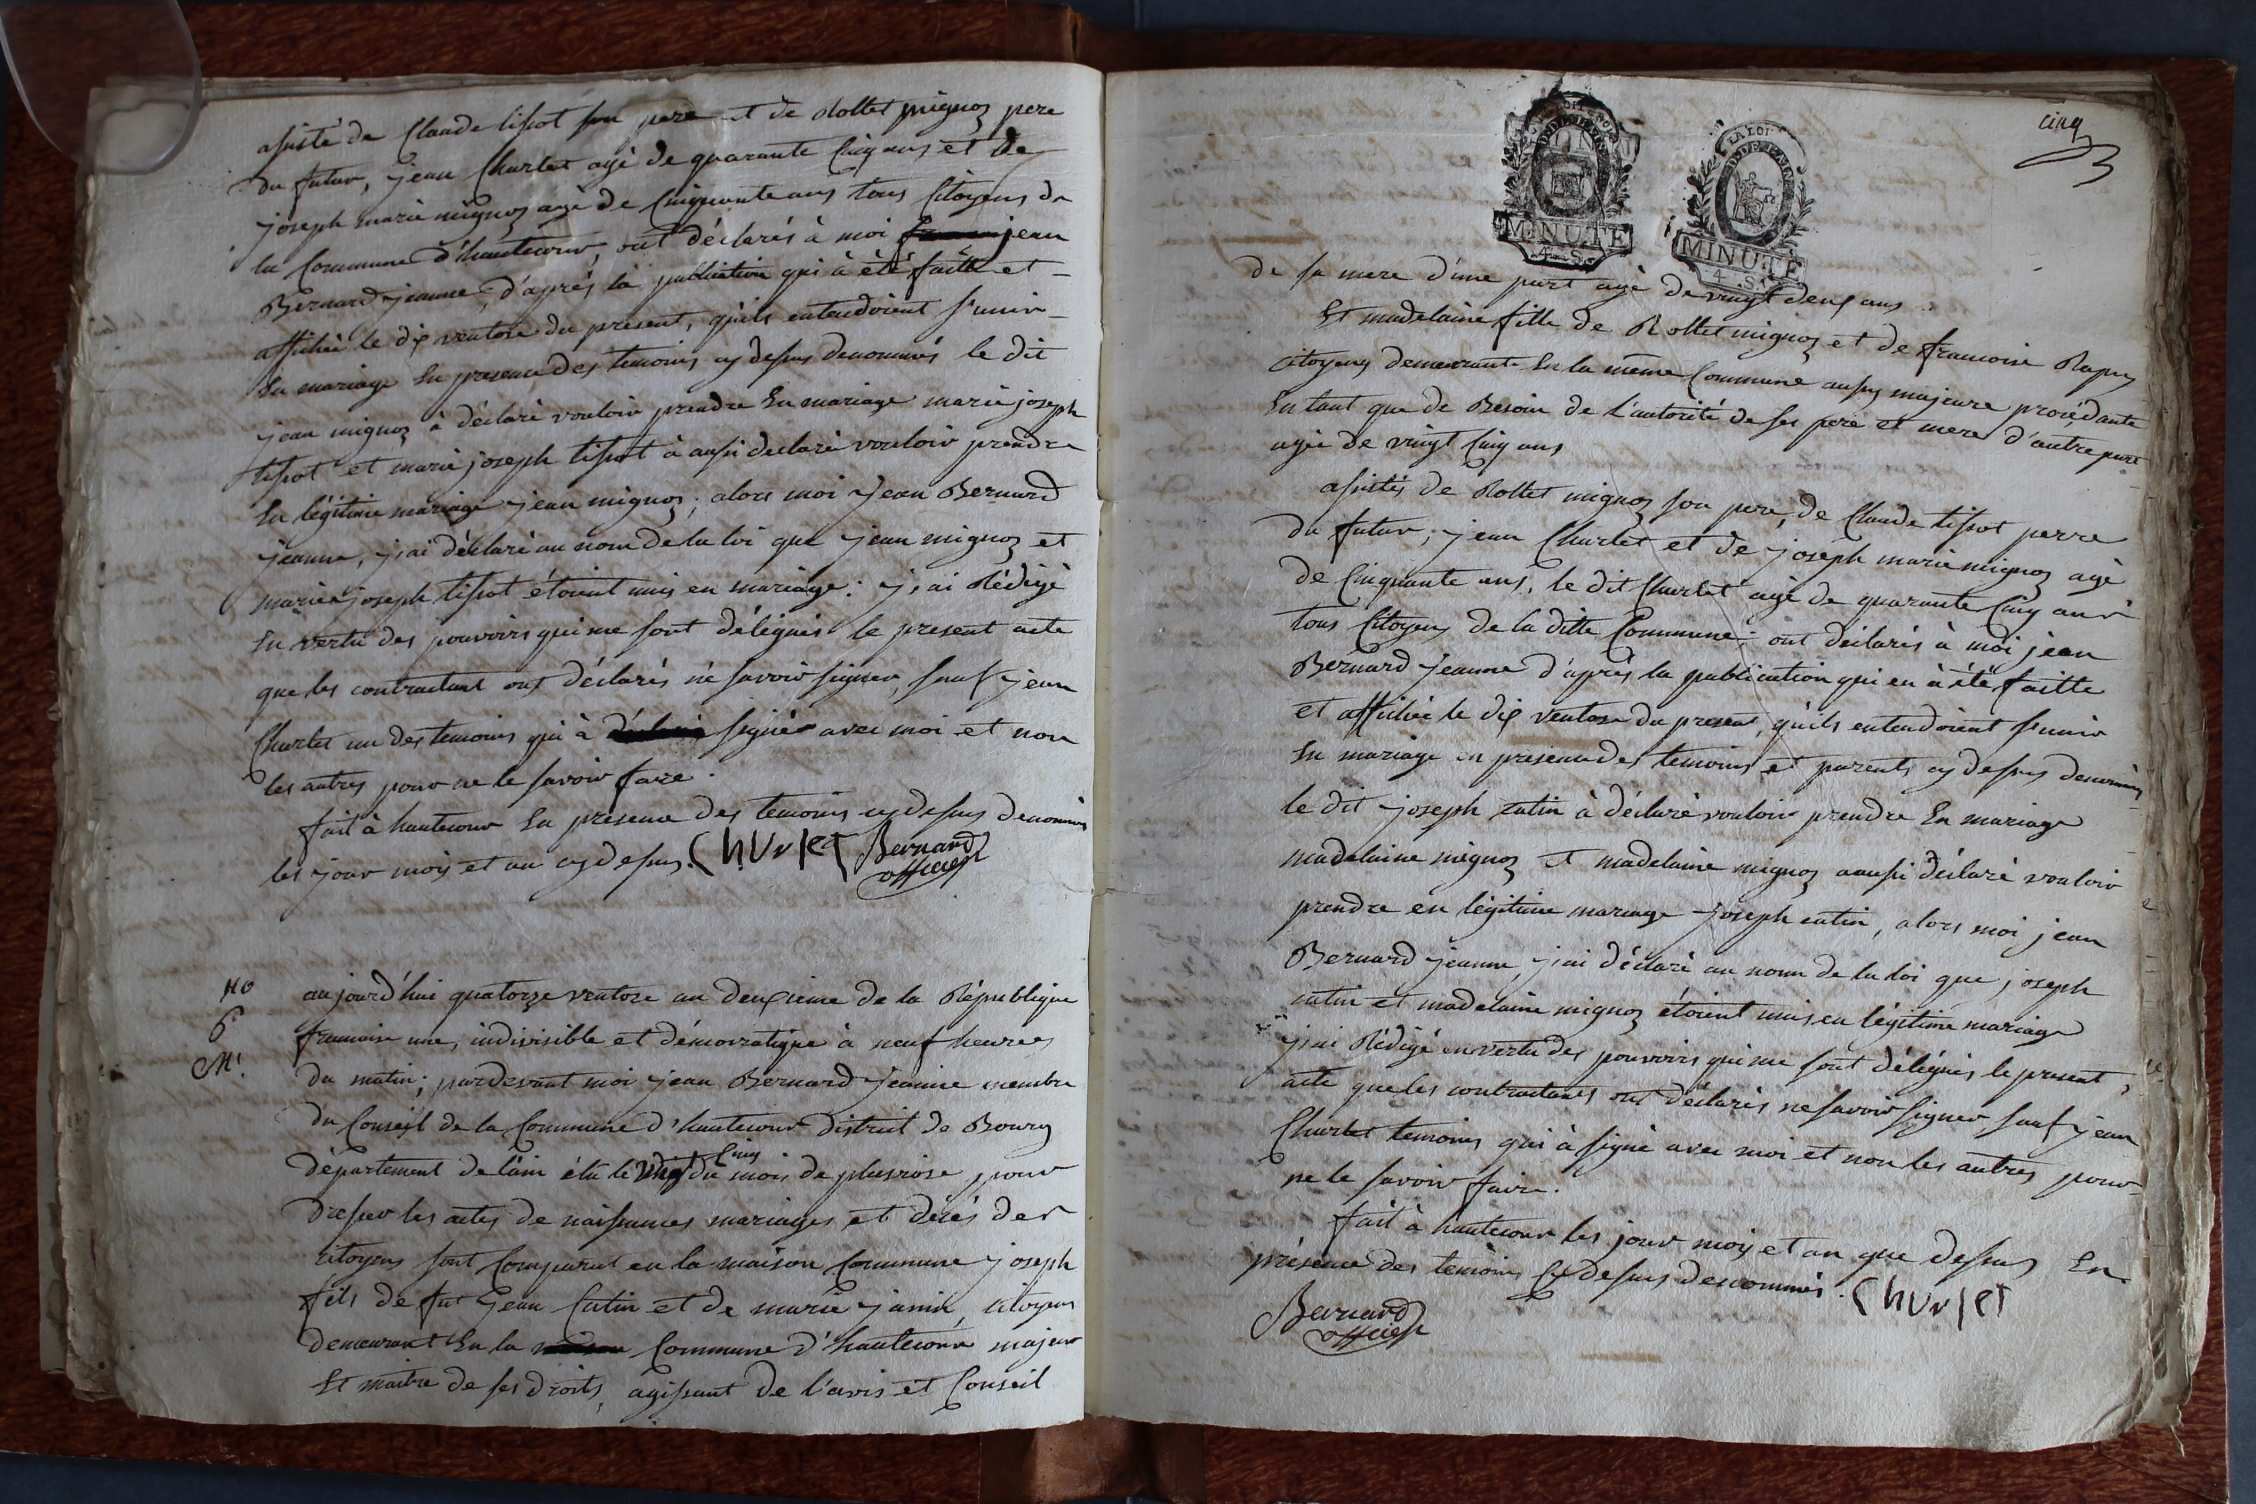 assisté de Claude tissot son pere et de Rollet mignoz pere
du futur, jean Charlet agé de quarante Cinq ans et de
joseph marie mignoz agé de Cinquante ans tous Citoyens de
la Commune d'hautecour, ont déclarés à moi jean
Bernard jeanne, d'après la publication qui à été faitte et
affichée le dix ventose du present, qu'ils entendoient s'unir
En mariage En presence des temoins cy dessus denommés le dit
jean mignoz à déclaré vouloir prendre En mariage marie joseph
tissot et marie joseph tissot à aussi declaré vouloir prendre
En légitime mariage jean mignoz; alors moi jean Bernard
jeanne, j'ai déclaré au nom de la loi que jean mignoz et
marie joseph tissot étoient unis en mariage: j'ai Rédigé
En vertu des pouvoirs qui me sont délégués le present acte
que les contractant ont déclarés né savoir signer, sauf jean
Charlet un des temoins qui à signér avec moi et non
les autres pour ne le savoir faire.
fait à hautecour En presence des temoins cy dessus denommés
les jour mois et an cy dessus. Churlet Bernard
officier
No
6
M!
aujourd'hui quatorze ventose an deuxieme de la République
francoise une, indivisible et démocratique à neuf heures
du matin; pardevant moi jean Bernard jeanne membre
du Conseil de la Commune d'hautecour district de Bourg
département de l'ain élu le vingt Cinq du mois de pluviose, pour
dresser les actes de naissances mariages et décés des
citoyens sont Comparut en la maison Commune joseph
fils de fut jean Catin et de marie janin, citoyens
demeurant En la Commune d'hautecour majeur
Et maitre de ses droits, agissant de l'avis et Conseil
cinq
LA LOI
MINUTE
4 S.
MINUTE
4 S.
de sa mere d'une part agé de vingt deux ans
Et madelaine fille de Rollet mignoz et de francoise
citoyens demeurants En la même Commune aussy majeure procédante
En tant que de Besoin de l'autorité de ses pere et mere d'autre part
agée de vingt Cinq ans
assistés de Rollet mignoz son pere, de Claude tissot perre
du futur, jean Charlet et de joseph marie mignoz agé
de Cinquante ans, le dit Charlet agé de quarante Cinq ans
tous Citoyens de la ditte Commune: ont déclarés à moi jean
Bernard jeanne d'après la publication qui en à été faitte
et affichée le dix ventose du present, qu'ils entendoient s'unir
En mariage en presence des temoins et parents cy dessus denommés
le dit joseph catin à déclaré vouloir prendre En mariage
madelaine mignoz et madelaine mignoz a aussi déclaré vouloir
prendre en légitime mariage joseph catin, alors moi jean
Bernard jeanne, j'ai déclaré au nom de la loi que joseph
catin et madelaine mignoz étoient unis en légitime mariage
j'ai Rédigé en vertu des pouvoirs qui me sont délégués, le present
acte que les contractants ont déclarés ne savoir signer, sauf jean
Charlet temoins qui à signé avec moi et non les autres pour
ne le savoir faire.
fait à hautecour les jour mois et an que dessus En
présence des temoins Cy dessus denommés. Churlet
Bernard
officier